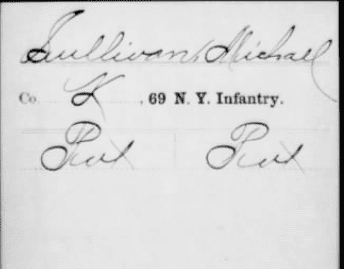 Sullivan, Michael
Co. K, 69 N. Y. Infantry.
Pvt Pvt